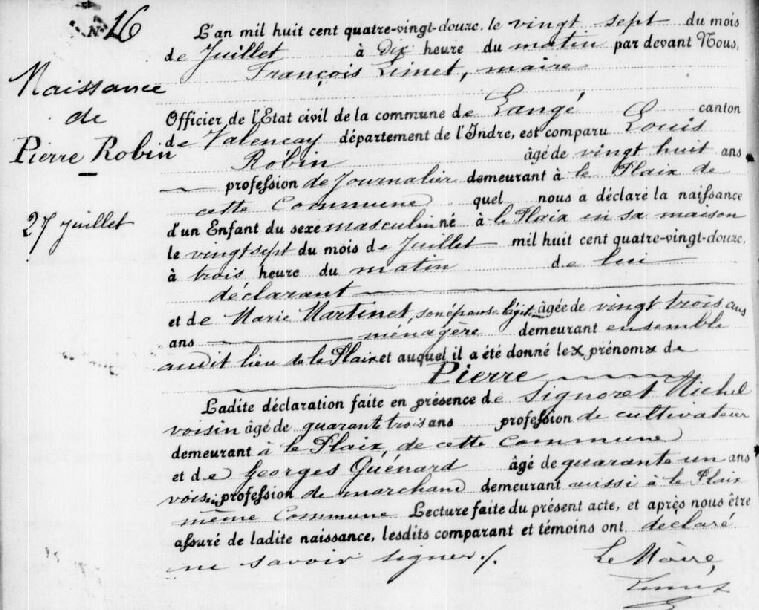 N° 16
Naissance
de
Pierre Robin
27 juillet
L'an mil huit cent quatre-vingt-douze, le vingt sept du mois
de Juillet à dix heure du matin par devant Nous,
François Limet, maire
Officier de l'Etat civil de la commune de Langé canton
de Valençay département de l'Indre, est comparu Louis
Robin âgé de vingt huit ans
profession de Journalier demeurant à le Plaix de
cette Commune quel nous a déclaré la naissance
d'un Enfant du sexe masculin né à le Plaix en sa maison
le vingt sept du mois de Juillet mil huit cent quatre-vingt-douze,
à trois heure du matin de lui
déclarant
et de Marie Martinet, son épouse âgée de vingt trois ans
ans ménagère demeurant ensemble
audit lieu de le Plaix et auquel il a été donné lex prénomx de
Pierre
Ladite déclaration faite en présence de Signoret Michel
voisin âgé de quarante trois ans profession de cultivateur
demeurant à le Plaix, de cette Commune
et de Georges Guénard âgé de quarante un ans
voisin profession de marchand demeurant aussi à le Plaix
même Commune Lecture faite du présent acte, et après nous être
assuré de ladite naissance, lesdits comparant et témoins ont déclaré
ne savoir signer ./.
Le Maire,
Limet